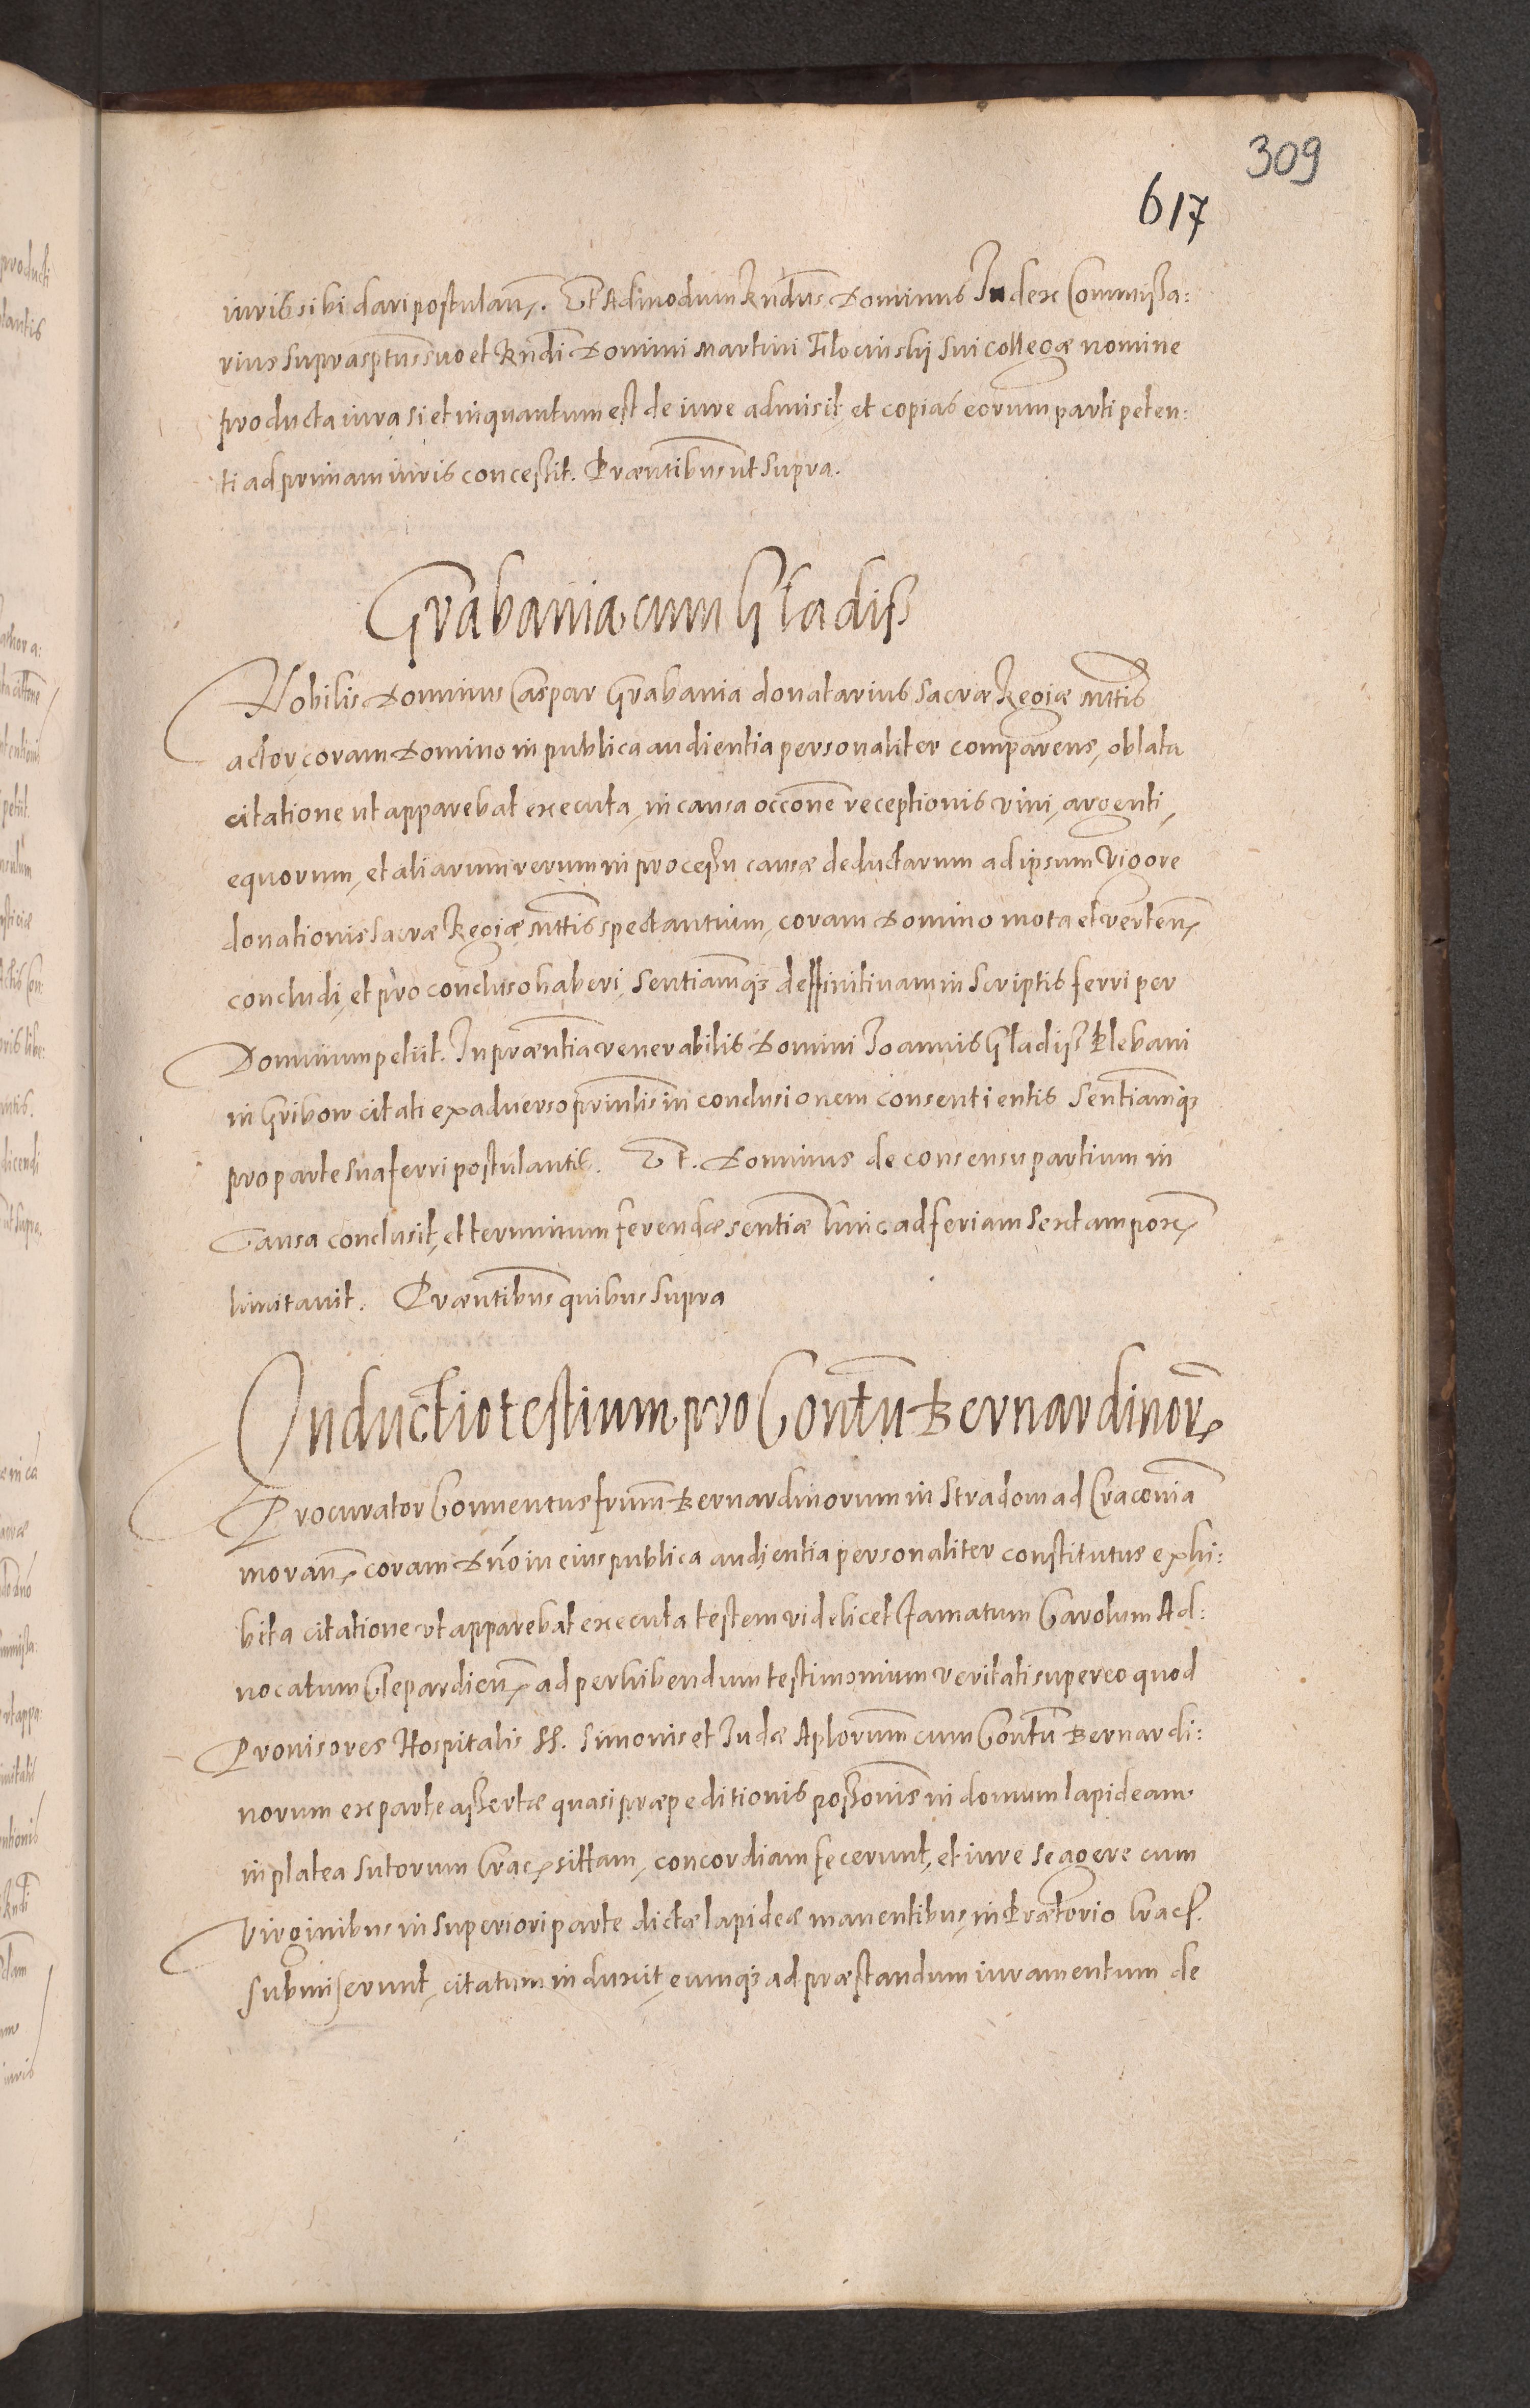 309
617
iuris sibi dari postulan̄. Et Admodum Rndūs Dominus Iudex Commißa:
rius suprasptūs suo et Rndi Domini Martini Filocinskj sui collegæ nomine
producta iura si et inquantum est de iure admisit, et copias eorum parti peten:
ti ad primam iuris conceßit. Præntibus ut supra.
Grabania cum Gładiß
Nobilis Dominus Caspar Grabania donatarius Sacræ Regiæ Mttis
actor, coram Domino in publica audientia personaliter comparens, oblata
citatione ut apparebat executa, in causa occone receptionis vini, argenti,
equorum, et aliarum rerum in proceßu causæ deductarum ad ipsum vigore
donationis Sacræ Regiæ Mttis spectantium, coram Domino mota et verten̄
concludi, et pro concluso haberi, sentiamq; deffinitivam in scriptis ferri per
Dominum petiit. In præntia venerabilis Domini Ioannis Gładiß Plebani
in Gribow citati ex adverso principalis in conclusionem consentientis sentiamq;
pro parte sua ferri postulantis. Et Dominus de consensu partium in
Causa conclusit, et terminum ferendæ sentiæ hinc ad feriam sextam prox̄
limitavit. Præntibus quibus supra
Inductio testium pro Contu Bernardinor̄
Procurator Conuentus frum Bernardinorum in Stradom ad Cracouiā
moran̄ coram Dno in eius publica audientia personaliter constitutus exhi:
bita citatione ut apparebat executa testem videlicet famatum Carolum Ad:
uocatum Clepardien̄ ad perhibendum testimonium veritati super eo quod
Prouisores Hospitalis SS. Simonis et Iudæ Aplorum cum Contu Bernardi:
norum ex parte aßertæ quasi præpeditionis poßonis in domum lapideam
in platea Sutorum Crac̄ sittam, concordiam fecerunt, et iure se agere cum
Virginibus in superiori parte dictæ lapideæ manentibus, in Prætorio Crac̄.
submiserunt, citatum induxit, eumq; ad præstandum iuramentum de